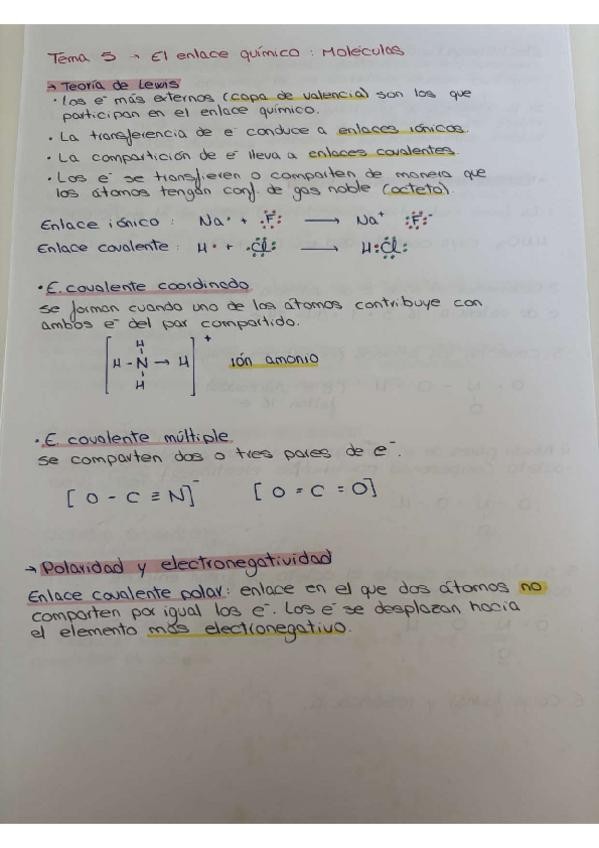 Tema 5 → El enlace químico: Moléculas
→ Teoría de Lewis
· Los e⁻ más externos (capa de valencia) son los que
participan en el enlace químico.
· La transferencia de e⁻ conduce a enlaces iónicos.
· La compartición de e⁻ lleva a enlaces covalentes.
· Los e⁻ se transfieren o comparten de manera que
los átomos tengan conf. de gas noble (octeto).
Enlace iónico: Na· + F → Na⁺ F⁻
Enlace covalente: H· + ·Cl → H:Cl
· E. covalente coordinado
se forman cuando uno de los átomos contribuye con
ambos e⁻ del par compartido.
H
[H - N → H]⁺ ión amonio
H
· E. covalente múltiple
se comparten dos o tres pares de e⁻.
[O - C ≡ N]⁻ [O = C = O]
→ Polaridad y electronegatividad
Enlace covalente polar: enlace en el que dos átomos no
comparten por igual los e⁻. Los e⁻ se desplazan hacia
el elemento más electronegativo.